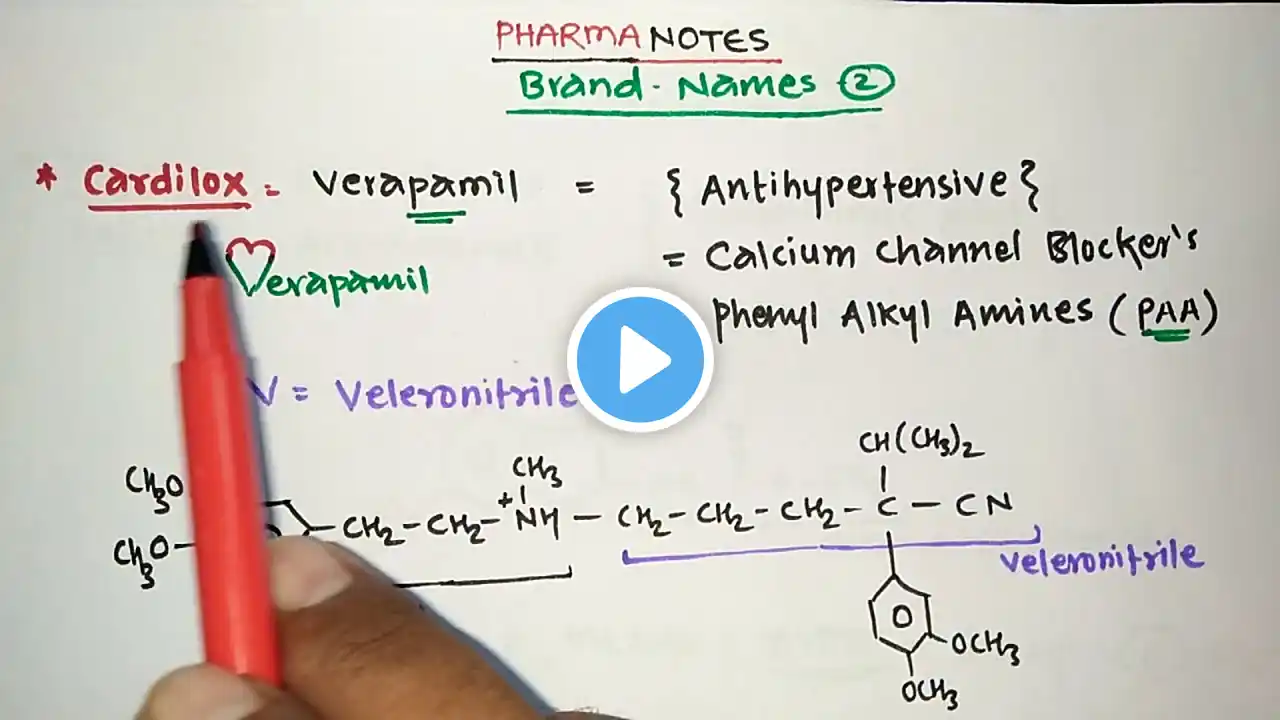 PHARMA NOTES
Brand - Names ②
* Cardilox = Verapamil = { Antihypertensive }
= Calcium Channel Blocker's
Verapamil
Phenyl Alkyl Amines (PAA)
V = Veleronitrile
CH(CH3)2
CH3O
CH3
CH3O - CH2 - CH2 - +NH - CH2 - CH2 - CH2 - C - CN
Veleronitrile
OCH3
OCH3